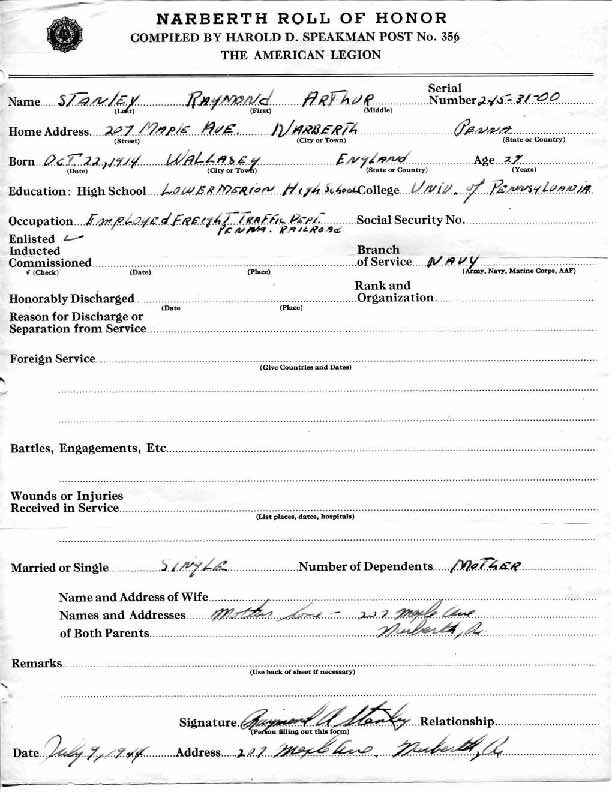 NARBERTH ROLL OF HONOR
COMPILED BY HAROLD D. SPEAKMAN POST No. 356
THE AMERICAN LEGION
Name STANLEY RAYMOND ARTHUR Serial Number 245-31-00
(Last) (First) (Middle)
Home Address 207 MAPLE AVE NARBERTH PENNA
(Street) (City or Town) (State or Country)
Born OCT. 22, 1914 WALLASEY ENGLAND Age 29
(Date) (City or Town) (State or Country) (Years)
Education: High School LOWER MERION HIGH School College UNIV. of PENNSYLVANIA
Occupation EMPLOYED FREIGHT TRAFFIC DEPT. Social Security No.
PENNA. RAILROAD
Enlisted ✓
Inducted Branch
Commissioned of Service NAVY
✓ (Check) (Date) (Place) (Army, Navy, Marine Corps, AAF)
Rank and
Honorably Discharged Organization
(Date (Place)
Reason for Discharge or
Separation from Service
Foreign Service
(Give Countries and Dates)
Battles, Engagements, Etc
Wounds or Injuries
Received in Service
(List places, dates, hospitals)
Married or Single SINGLE Number of Dependents MOTHER
Name and Address of Wife
Names and Addresses Mother - 207 Maple Ave
of Both Parents Narberth, Pa
Remarks
(Use back of sheet if necessary)
Signature Raymond A Stanley Relationship
(Person filling out this form)
Date July 9, 1944 Address 207 Maple Ave. Narberth, Pa